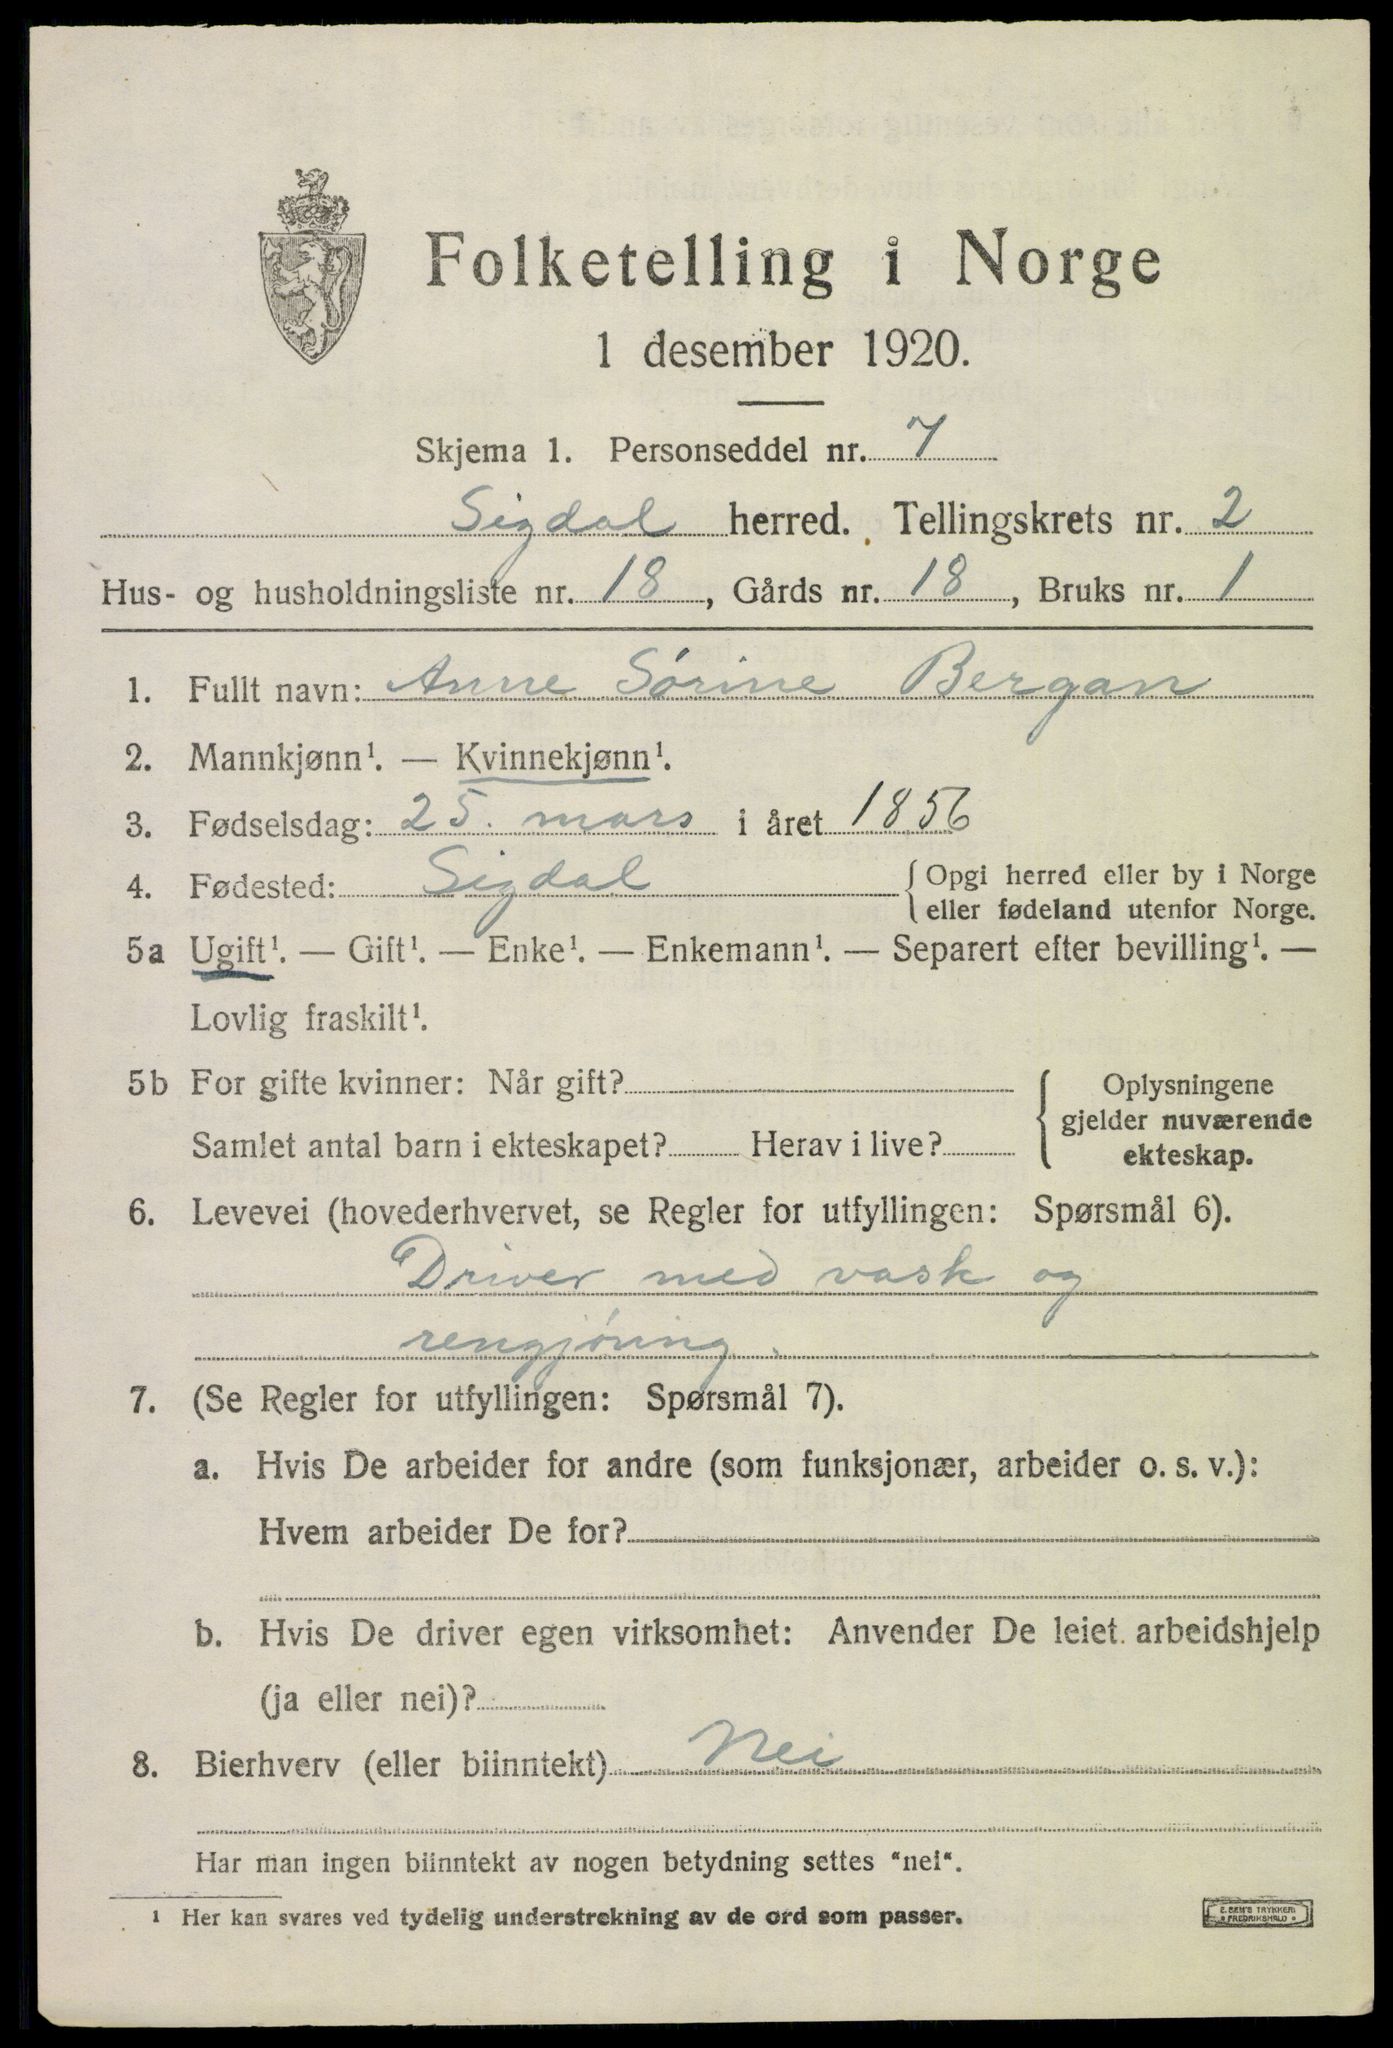 Folketelling i Norge
1 desember 1920.
Skjema 1. Personseddel nr. 7
Sigdal herred. Tellingskrets nr. 2
Hus- og husholdningsliste nr. 18, Gårds nr. 18, Bruks nr. 1
1. Fullt navn: Anne Sórine Bergan
2. Mannkjønn¹. — Kvinnekjønn¹.
3. Fødselsdag: 25. mars i året 1856
4. Fødested: Sigdal { Opgi herred eller by i Norge
eller fødeland utenfor Norge.
5a Ugift¹. — Gift¹. — Enke¹. — Enkemann¹. — Separert efter bevilling¹. —
Lovlig fraskilt¹.
5b For gifte kvinner: Når gift? { Oplysningene
gjelder nuværende
Samlet antal barn i ekteskapet? Herav i live? ekteskap.
6. Levevei (hovederhvervet, se Regler for utfyllingen: Spørsmål 6).
Driver med vask og
rengjóring.
7. (Se Regler for utfyllingen: Spørsmål 7).
a. Hvis De arbeider for andre (som funksjonær, arbeider o. s. v.):
Hvem arbeider De for?
b. Hvis De driver egen virksomhet: Anvender De leiet arbeidshjelp
(ja eller nei)?
8. Bierhverv (eller biinntekt) Nei
Har man ingen biinntekt av nogen betydning settes "nei".
¹ Her kan svares ved tydelig understrekning av de ord som passer.
E. SEM'S TRYKKERI
FREDRIKSHALD